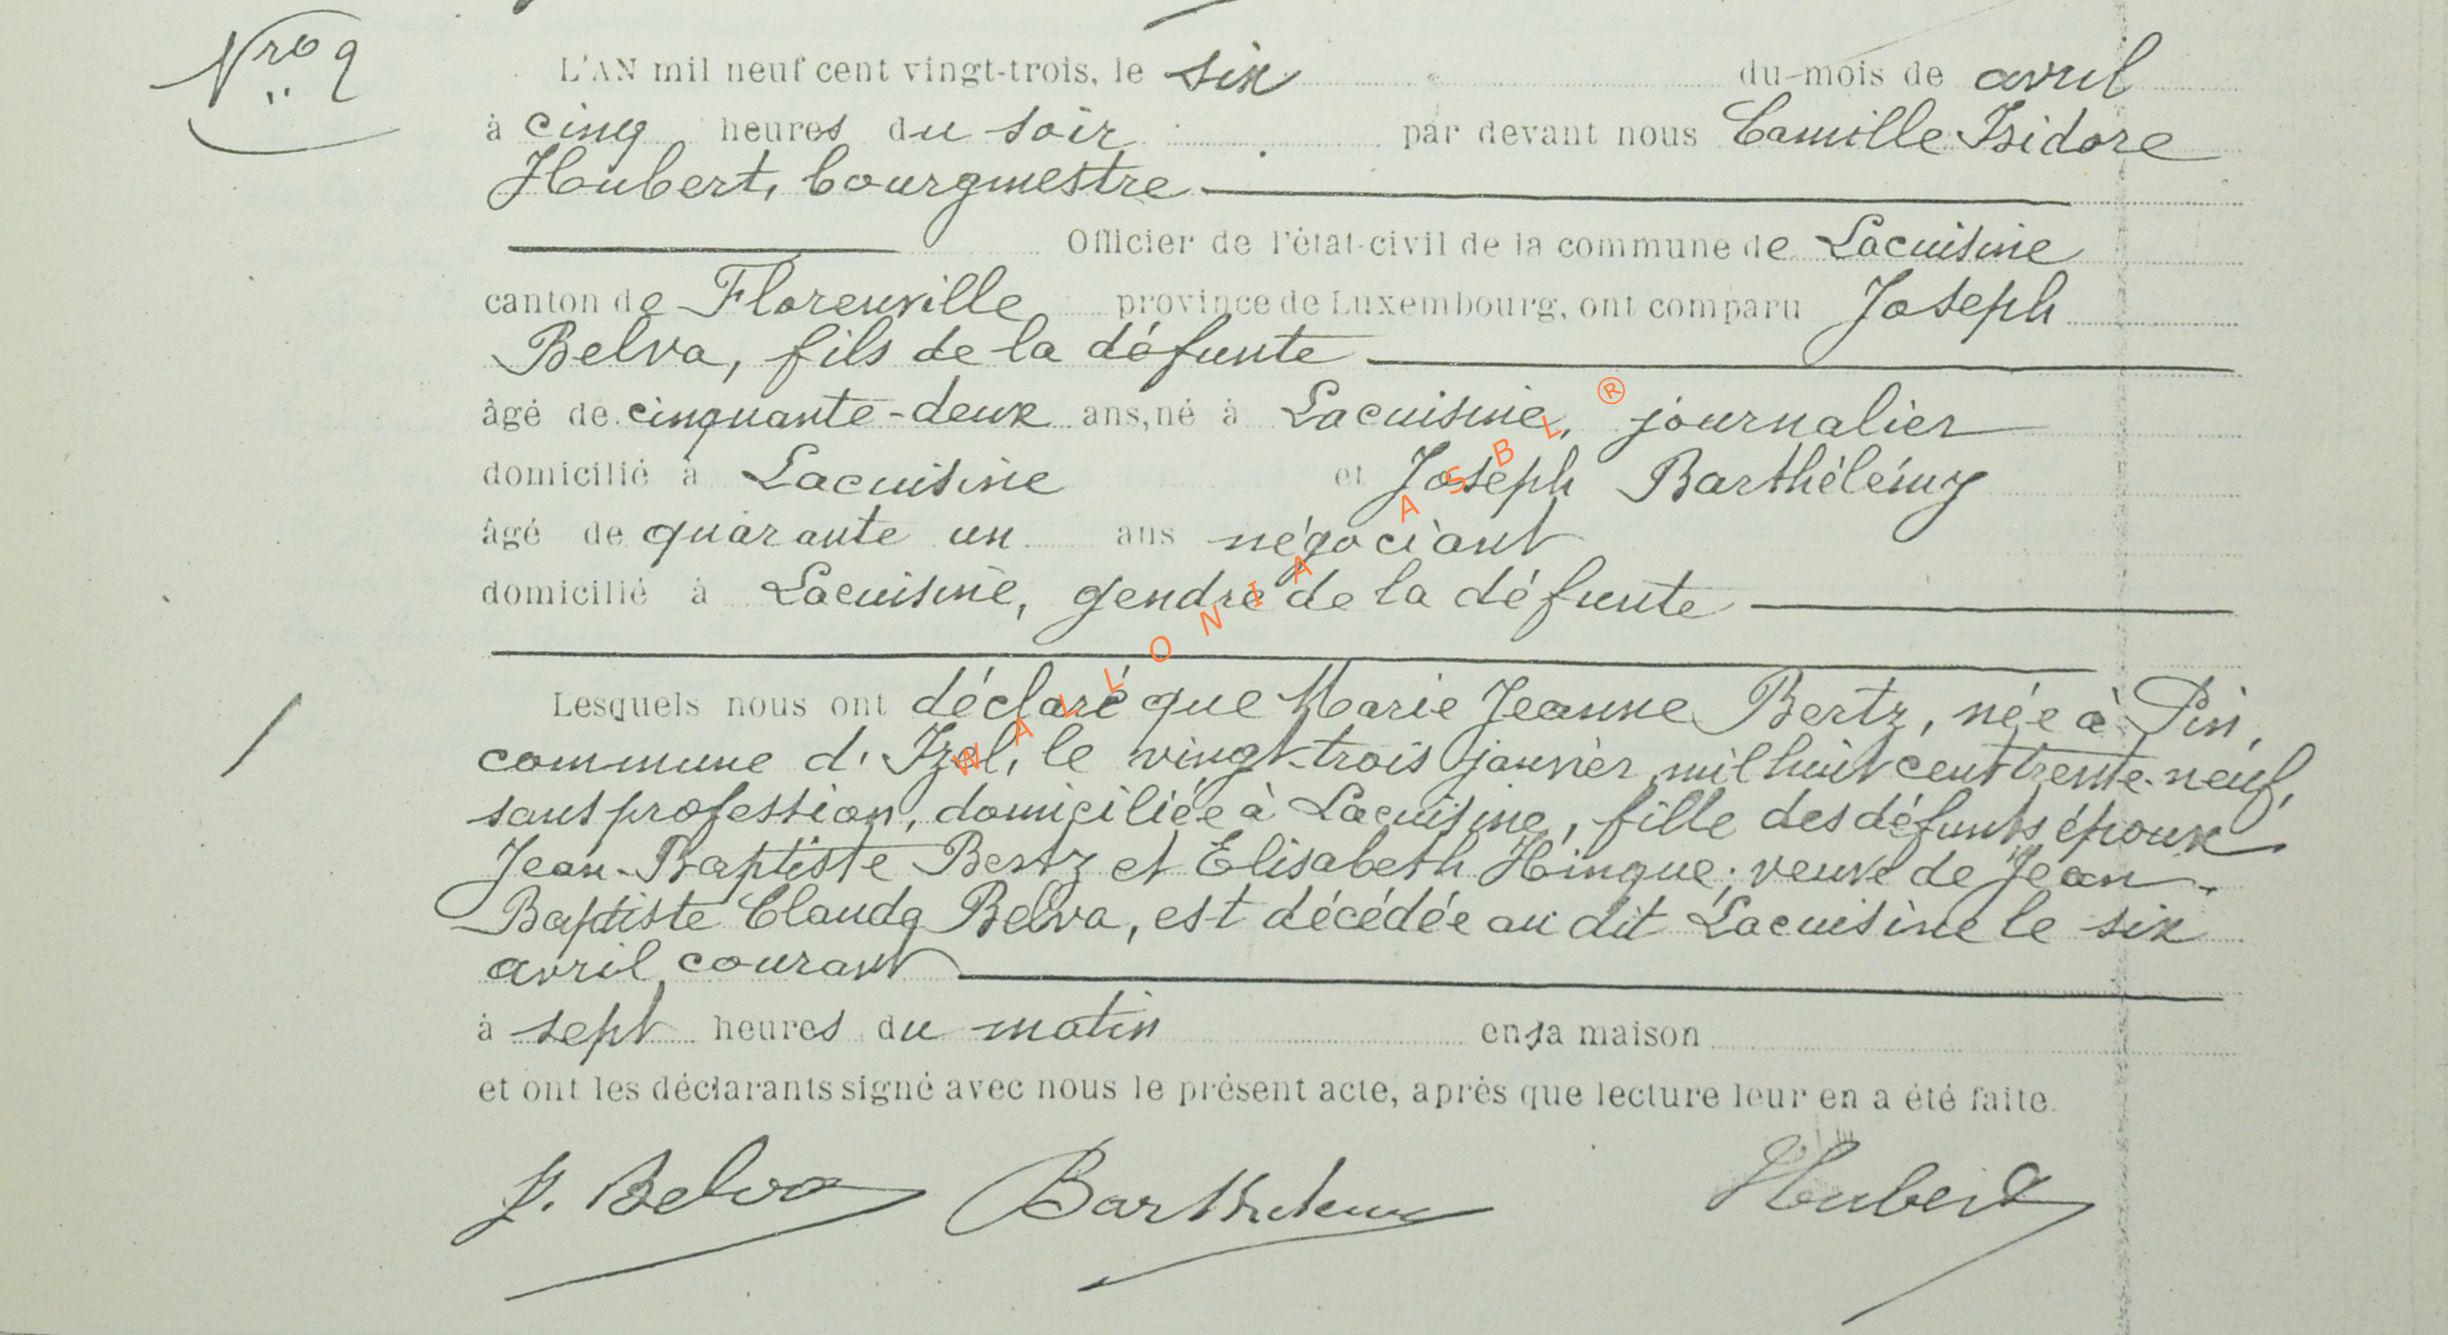 Nro 9
L'AN mil neuf cent vingt-trois, le six du mois de avril
à cinq heures du soir par devant nous Camille Isidore
Hubert, bourgmestre
Officier de l'état-civil de la commune de Lacuisine
canton de Florenville province de Luxembourg, ont comparu Joseph
Belva, fils de la défunte
âgé de cinquante-deux ans, né à Lacuisine, journalier
domicilié à Lacuisine et Joseph Barthélémy
âgé de quarante un ans négociant
domicilié à Lacuisine, gendre de la défunte
Lesquels nous ont déclaré que Marie Jeanne Bertz, née à Pin,
commune d'Izel, le vingt-trois janvier mil huit cent trente-neuf,
sans profession, domiciliée à Lacuisine, fille des défunts époux
Jean-Baptiste Bertz et Elisabeth Hingue; veuve de Jean-
Baptiste Claude Belva, est décédée au dit Lacuisine le six
avril courant
à sept heures du matin en sa maison
et ont les déclarants signé avec nous le présent acte, après que lecture leur en a été faite.
J. Belva Barthélemy Hubert
WALLONIA ASBL ®